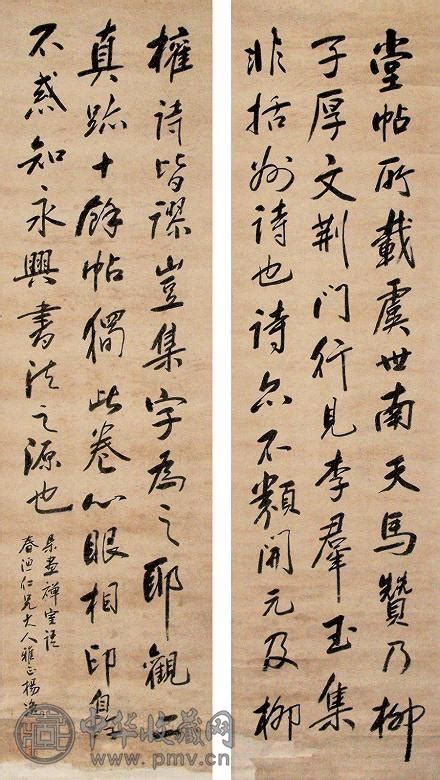 堂帖所載虞世南天馬贊乃柳
子厚文荆門行見李羣玉集
非括州詩也詩亦不類開元及柳
權詩皆謬豈集字為之耶觀
真跡十餘帖獨此卷心眼相印
不惑知永興書法之源也
畫禪室語
春仁兄大人雅正楊
中华收藏网
www.pmv.cn